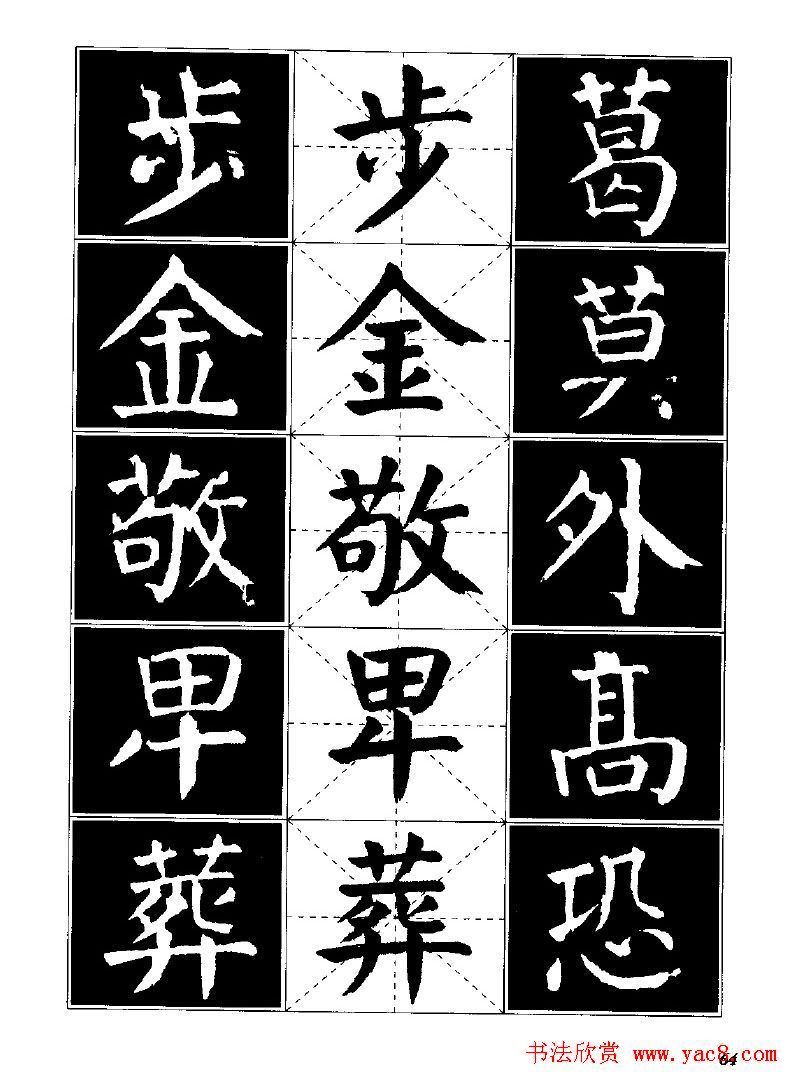 步 步 葛
金 金 莫
敬 敬 外
卑 卑 高
葬 葬 恐
书法欣赏 www.yac8.com
64